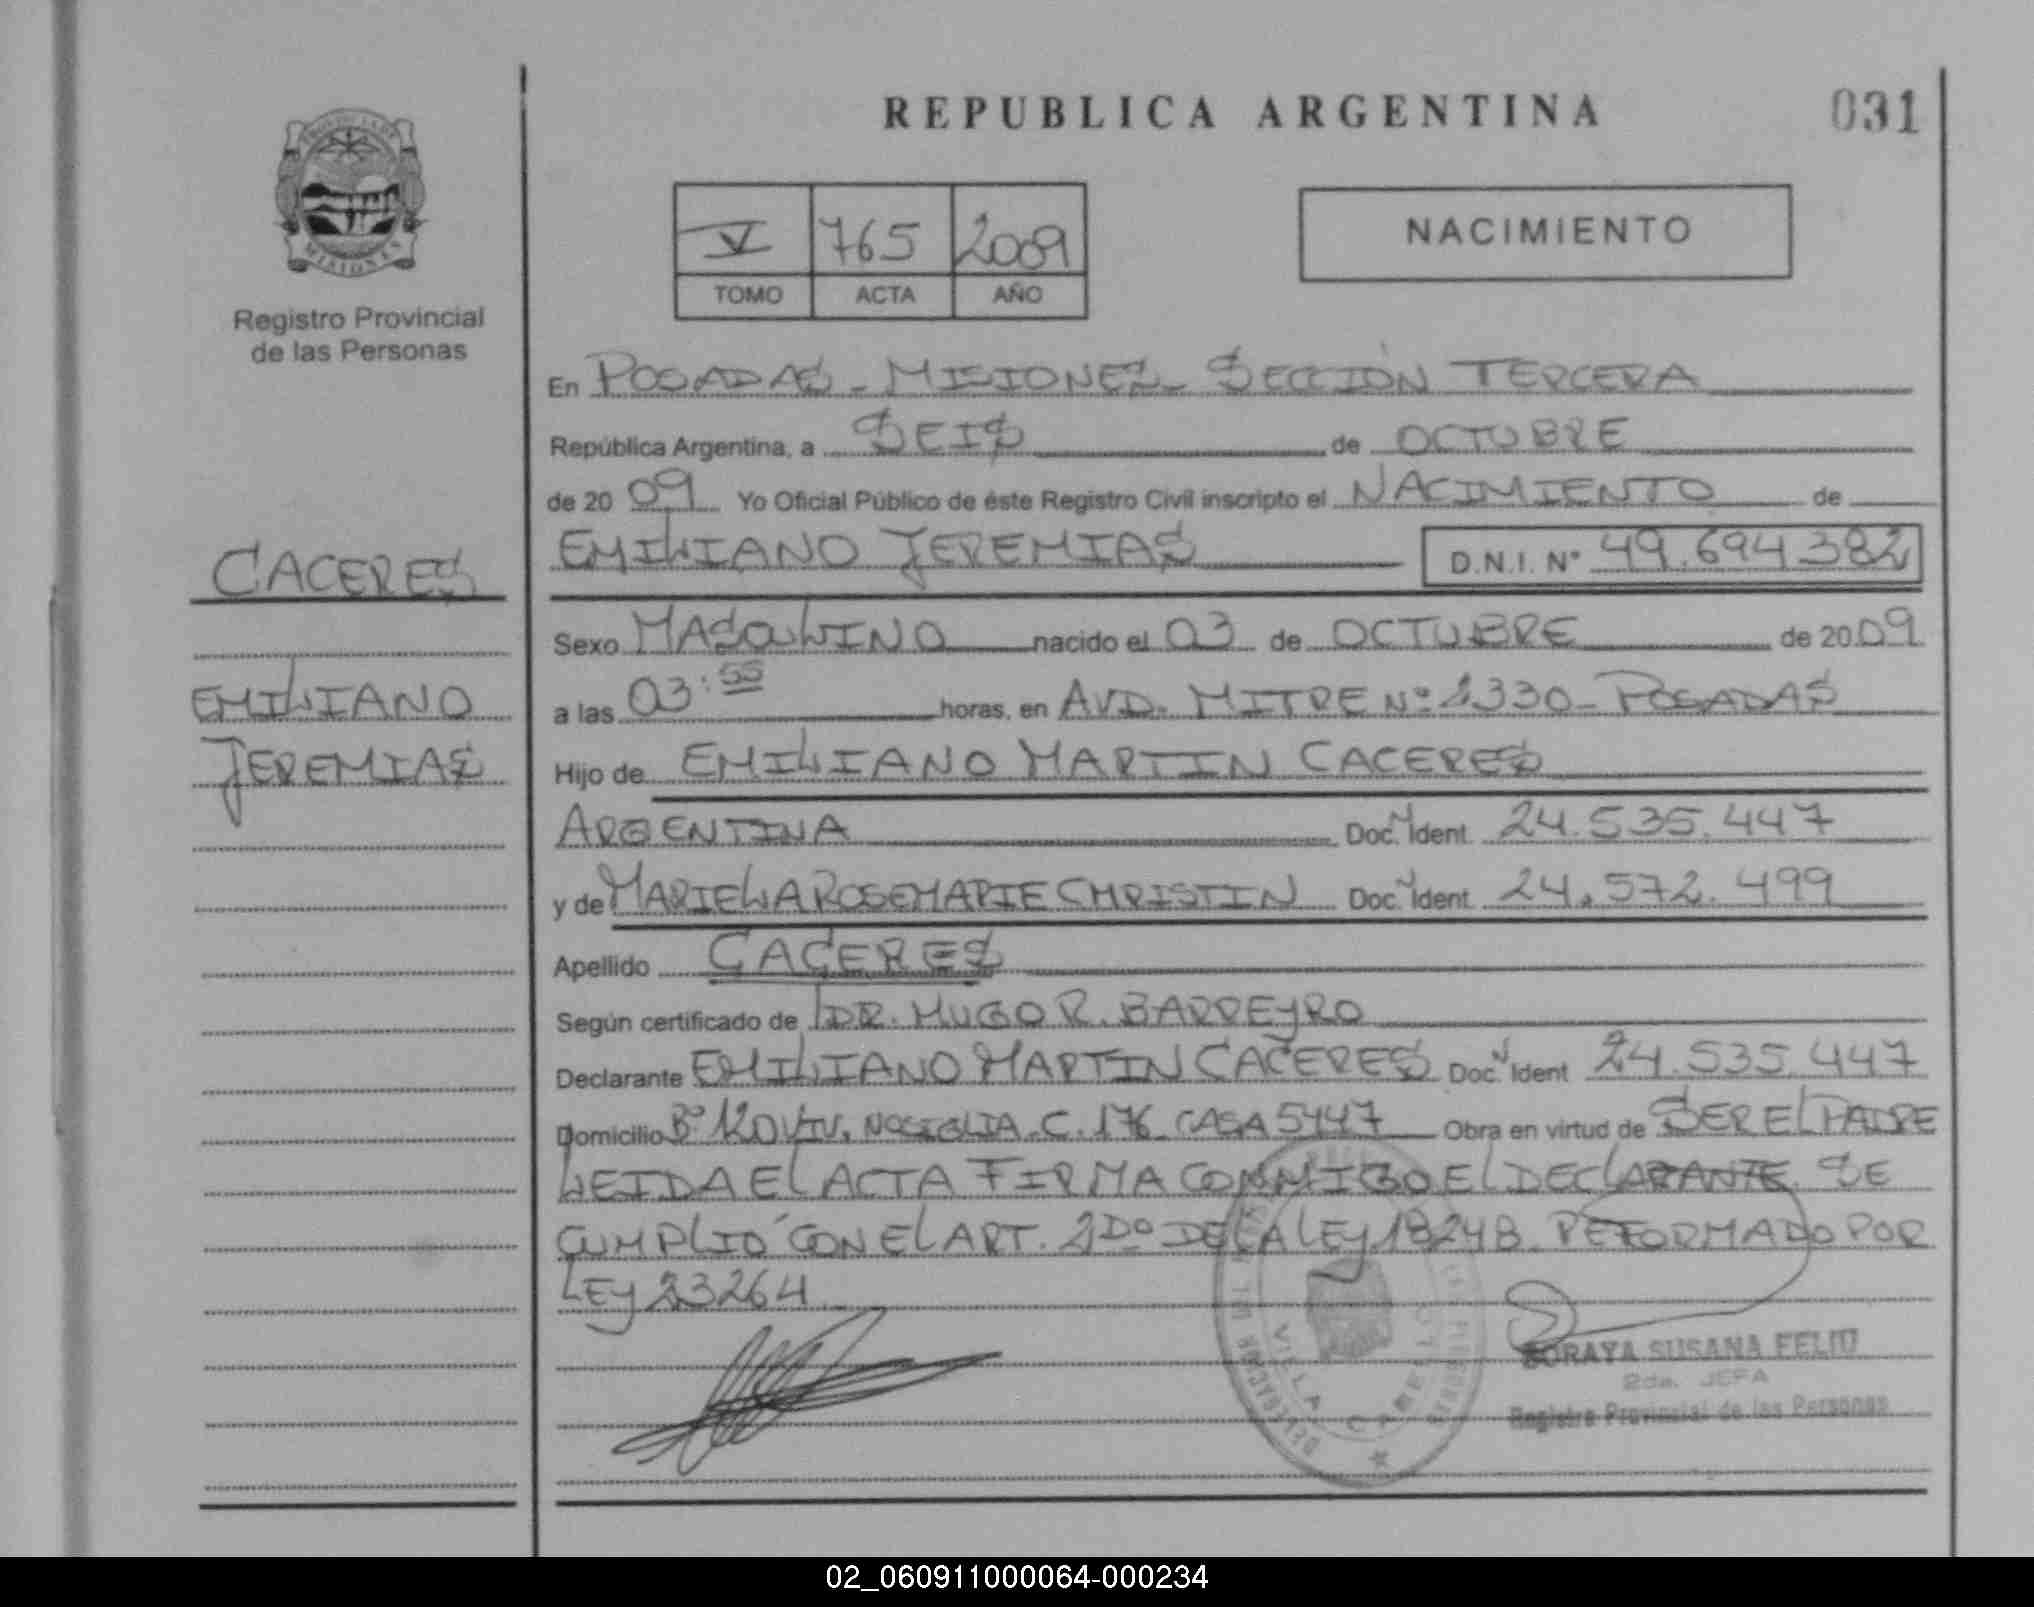 REPUBLICA ARGENTINA
031
PROVINCIA DE
MISIONES
Registro Provincial
de las Personas
V 765 2009
TOMO ACTA AÑO
NACIMIENTO
En POSADAS - MISIONES - SECCIÓN TERCERA
República Argentina, a SEIS de OCTUBRE
de 20 09 Yo Oficial Público de éste Registro Civil inscripto el NACIMIENTO de
EMILIANO JEREMIAS D.N.I. Nº 49.694382
CACERES
EMILIANO
JEREMIAS
Sexo MASCULINO nacido el 03 de OCTUBRE de 20 09
a las 03:55 horas, en AVD. MITRE Nº 2330 - POSADAS
Hijo de EMILIANO MARTIN CACERES
ARGENTINA Doc. Ident. 24.535.447
y de MARIELA ROSEMARIE CHRISTIN Doc. Ident. 24.572.499
Apellido CACERES
Según certificado de DR. HUGO R. BARREYRO
Declarante EMILIANO MARTIN CACERES Doc. Ident 24.535.447
Domicilio Bº 120 VIV. NOSIGLIA. C. 176 CASA 5447 Obra en virtud de SER EL PADRE
LEIDA EL ACTA FIRMA CONMIGO EL DECLARANTE. SE
CUMPLIÓ CON EL ART. 2DO DE LA LEY 18248. REFORMADO POR
LEY 23264
SORAYA SUSANA FELIU
2da. JEFA
Registro Provincial de las Personas
02_060911000064-000234